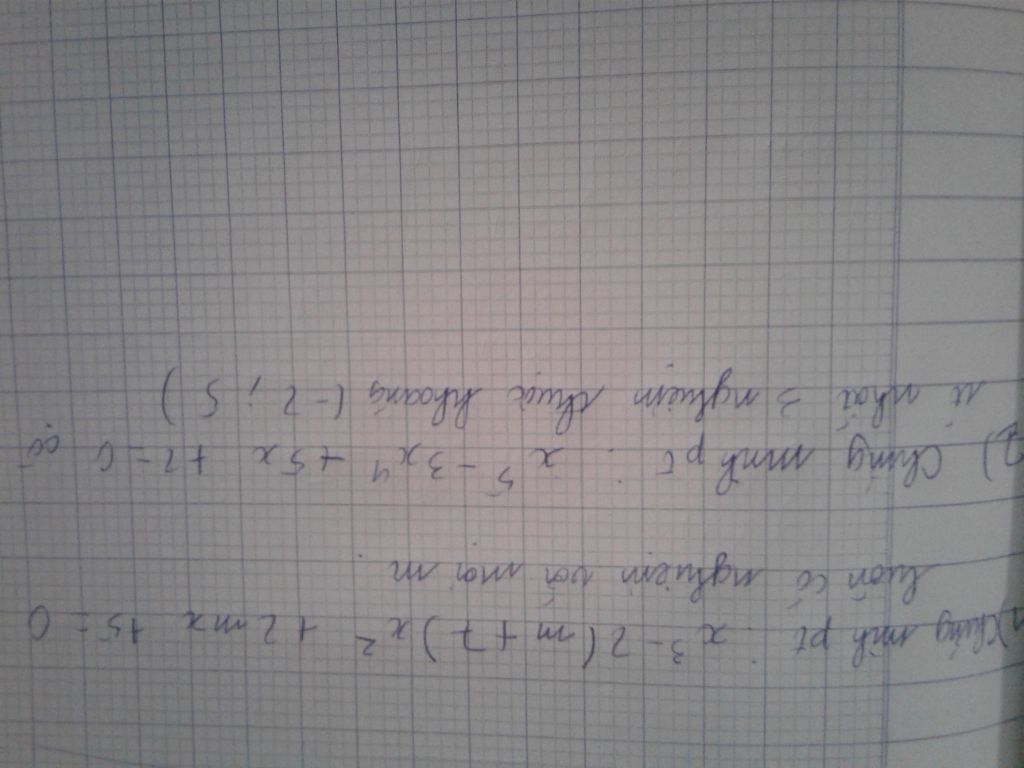 1) Chứng minh pt : x³ - 2(m+7)x² + 2mx + 5 = 0
luôn có nghiệm với mọi m
2) Chứng minh pt : x⁵ - 3x⁴ + 5x + 2 = 0 có
ít nhất 3 nghiệm thuộc khoảng (-2 ; 5)